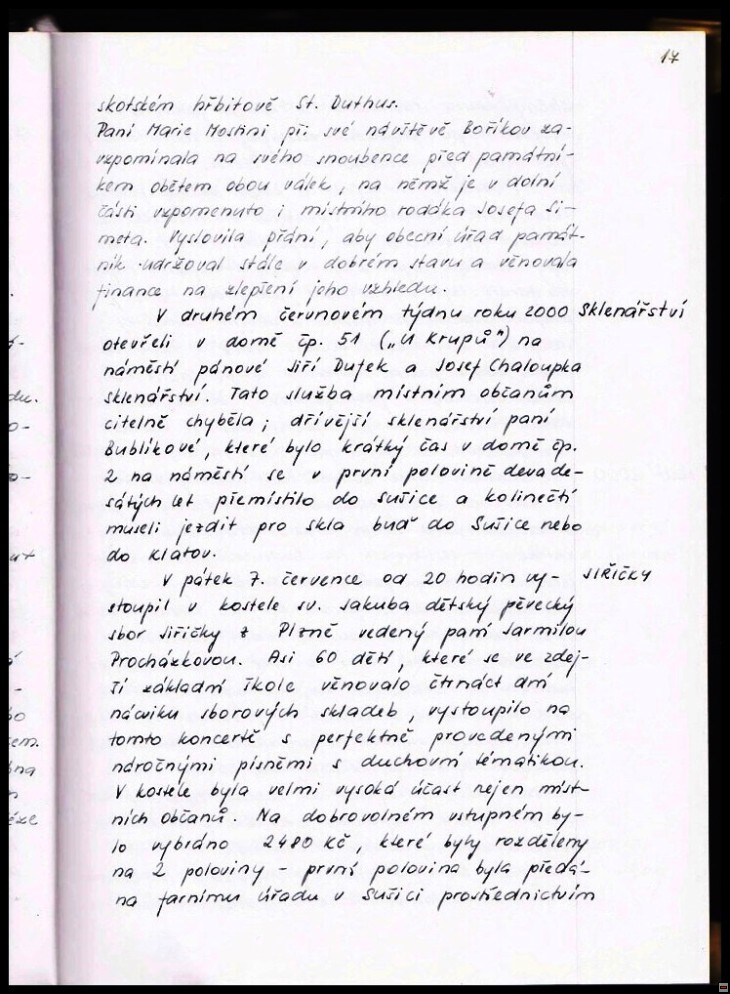 17
skotském hřbitově St. Duthus.
Paní Marie Mostini při své návštěvě Boříkov za-
vzpomínala na svého snoubence před památní-
kem obětem obou válek, na němž je v dolní
části vzpomenuto i místního rodáka Josefa Ši-
meta. Vyslovila přání, aby obecní úřad památ-
ník udržoval stále v dobrém stavu a věnovala
finance na zlepšení jeho vzhledu.
V druhém červnovém týdnu roku 2000 Sklenářství
otevřeli v domě čp. 51 („U Krupů") na
náměstí pánové Jiří Dufek a Josef Chaloupka
sklenářství. Tato služba místním občanům
citelně chyběla; dřívější sklenářství paní
Bublíkové, které bylo krátký čas v domě čp.
2 na náměstí se v první polovině devade-
sátých let přemístilo do Sušice a kolinečtí
museli jezdit pro skla buď do Sušice nebo
do Klatov.
V pátek 7. července od 20 hodin vy- JIŘIČKY
stoupil v kostele sv. Jakuba dětský pěvecký
sbor Jiřičky z Plzně vedený paní Jarmilou
Procházkovou. Asi 60 dětí, které se ve zdej-
ší základní škole věnovalo čtrnáct dní
nácviku sborových skladeb, vystoupilo na
tomto koncertě s perfektně provedenými
náročnými písněmi s duchovní tématikou.
V kostele byla velmi vysoká účast nejen míst-
ních občanů. Na dobrovolném vstupném by-
lo vybráno 2480 Kč, které byly rozděleny
na 2 poloviny - první polovina byla předá-
na farnímu úřadu v Sušici prostřednictvím